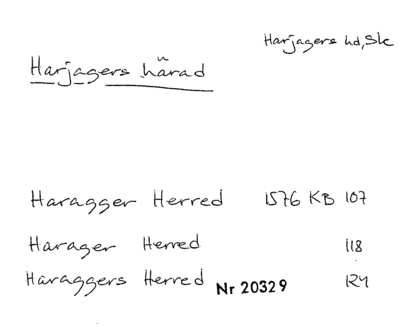 Harjagers hd, Sk
Harjagers härad
Haragger Herred 1576 KB 107
Harager Herred 118
Haraggers Herred Nr 20329 124